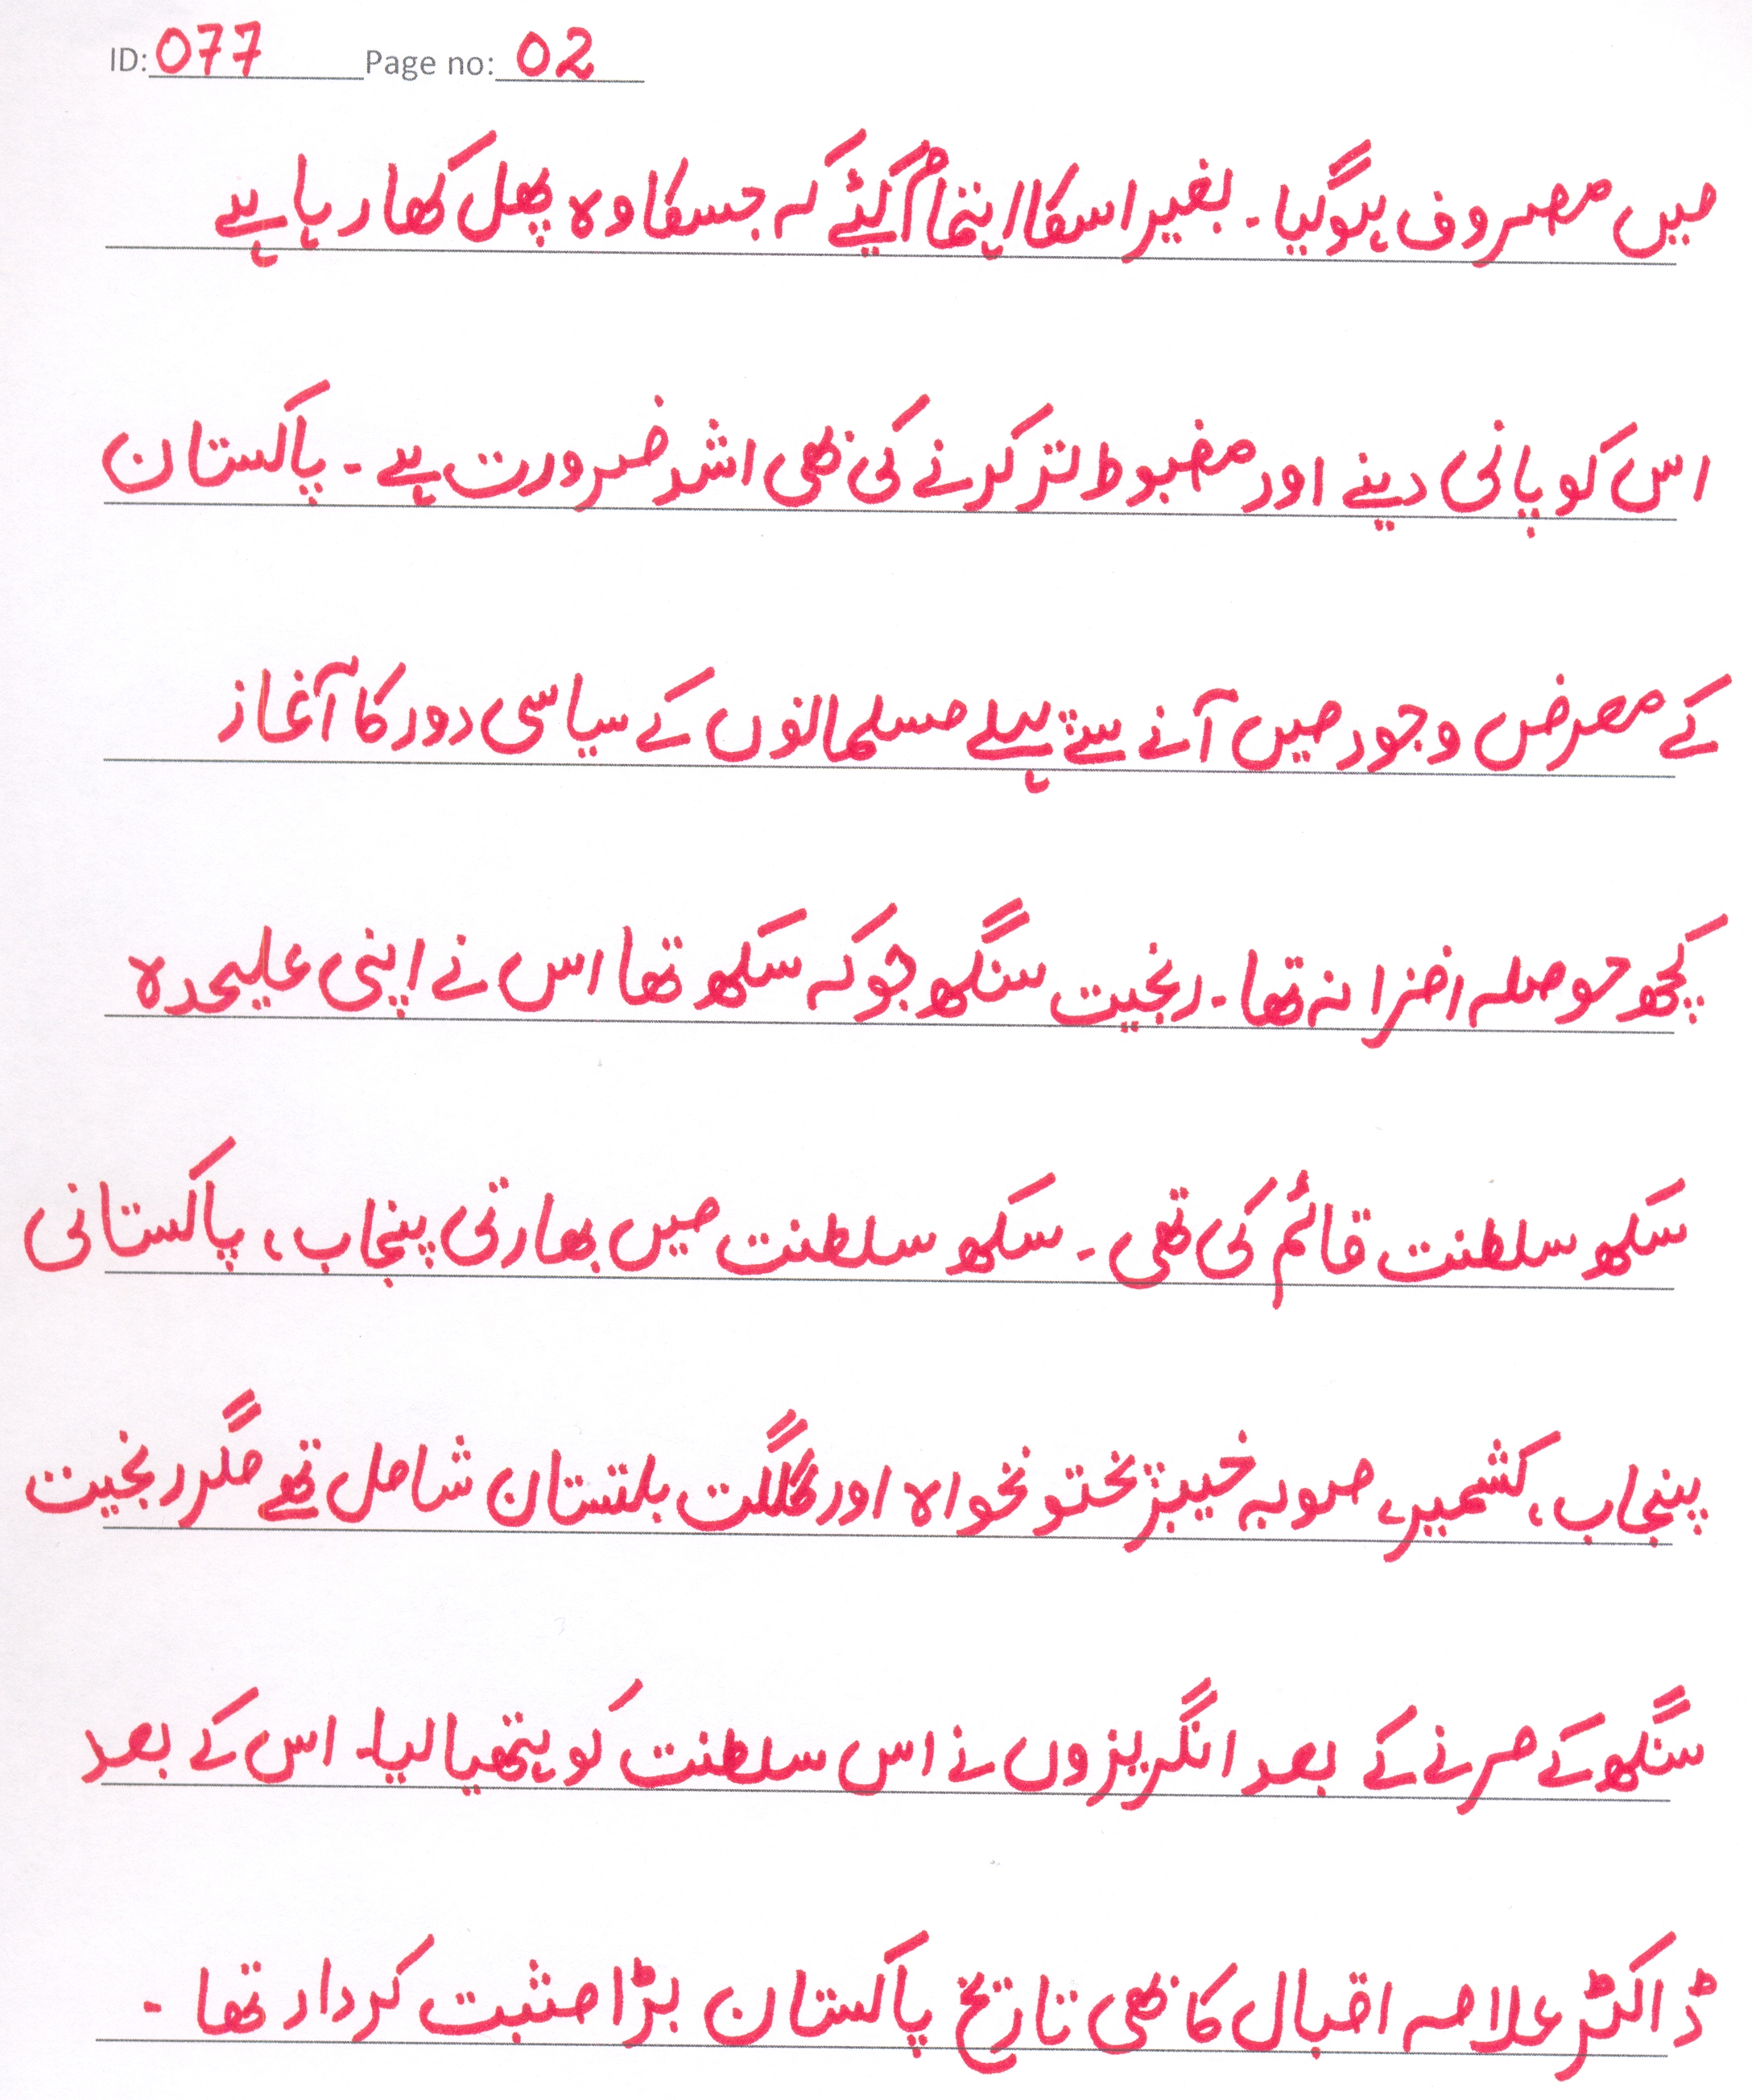 ID: 077 Page no: 02
میں مصروف ہوگیا۔ بغیر اسکا اہتمام کیئے کہ جسکا وہ پھل کھا رہا ہے
اس کو پانی دینے اور مضبوط تر کرنے کی بھی اشد ضرورت ہے۔ پاکستان
کے معرض وجود میں آنے سے پہلے مسلمانوں کے سیاسی دور کا آغاز
کچھ حوصلہ افزا نہ تھا۔ رنجیت سنگھ جو کہ سکھ تھا اس نے اپنی علیحدہ
سکھ سلطنت قائم کی تھی۔ سکھ سلطنت میں بھارتی پنجاب، پاکستانی
پنجاب، کشمیر، صوبہ خیبر پختونخواہ اور گلگت بلتستان شامل تھے مگر رنجیت
سنگھ کے مرنے کے بعد انگریزوں نے اس سلطنت کو ہتھیا لیا۔ اس کے بعد
ڈاکٹر علامہ اقبال کا بھی تاریخ پاکستان بڑا مثبت کردار تھا۔